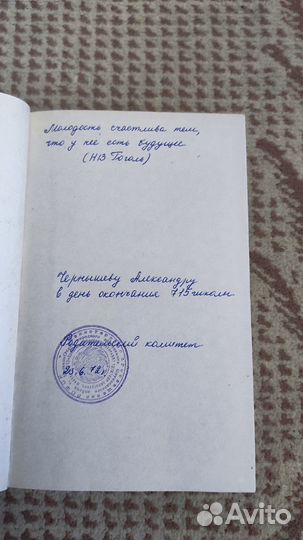 Молодость счастлива тем,
что у неё есть будущее
(Н.В Гоголь)
Чернышеву Александру
в день окончания 715 школы
Родительский комитет
25.6.72г.
Avito